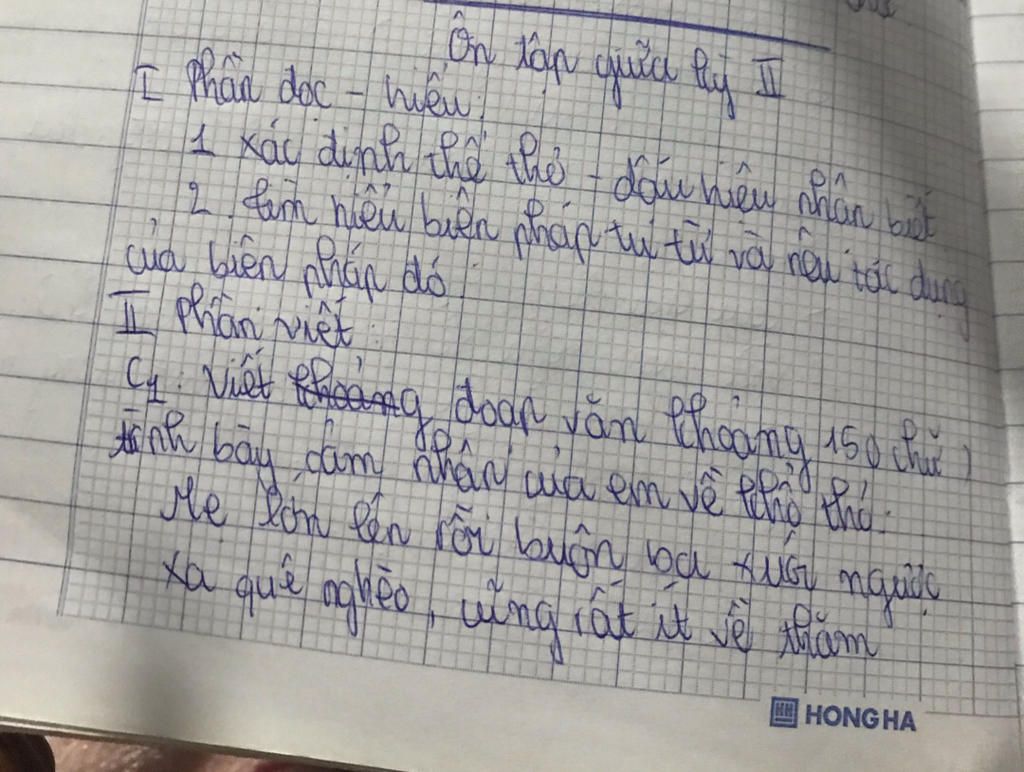 Ôn tập giữa kỳ II
I Phần đọc - hiểu:
1 xác định thể thơ - dấu hiệu nhận biết
2. tìm hiểu biện pháp tu từ và nêu tác dụng
của biện pháp đó:
II Phần viết:
C1: Viết đoạn văn khoảng 150 chữ)
trình bày cảm nhận của em về khổ thơ:
Mẹ lớn lên rồi buôn bá xuôi ngược
xa quê nghèo, cũng rất ít về thăm
HONG HA